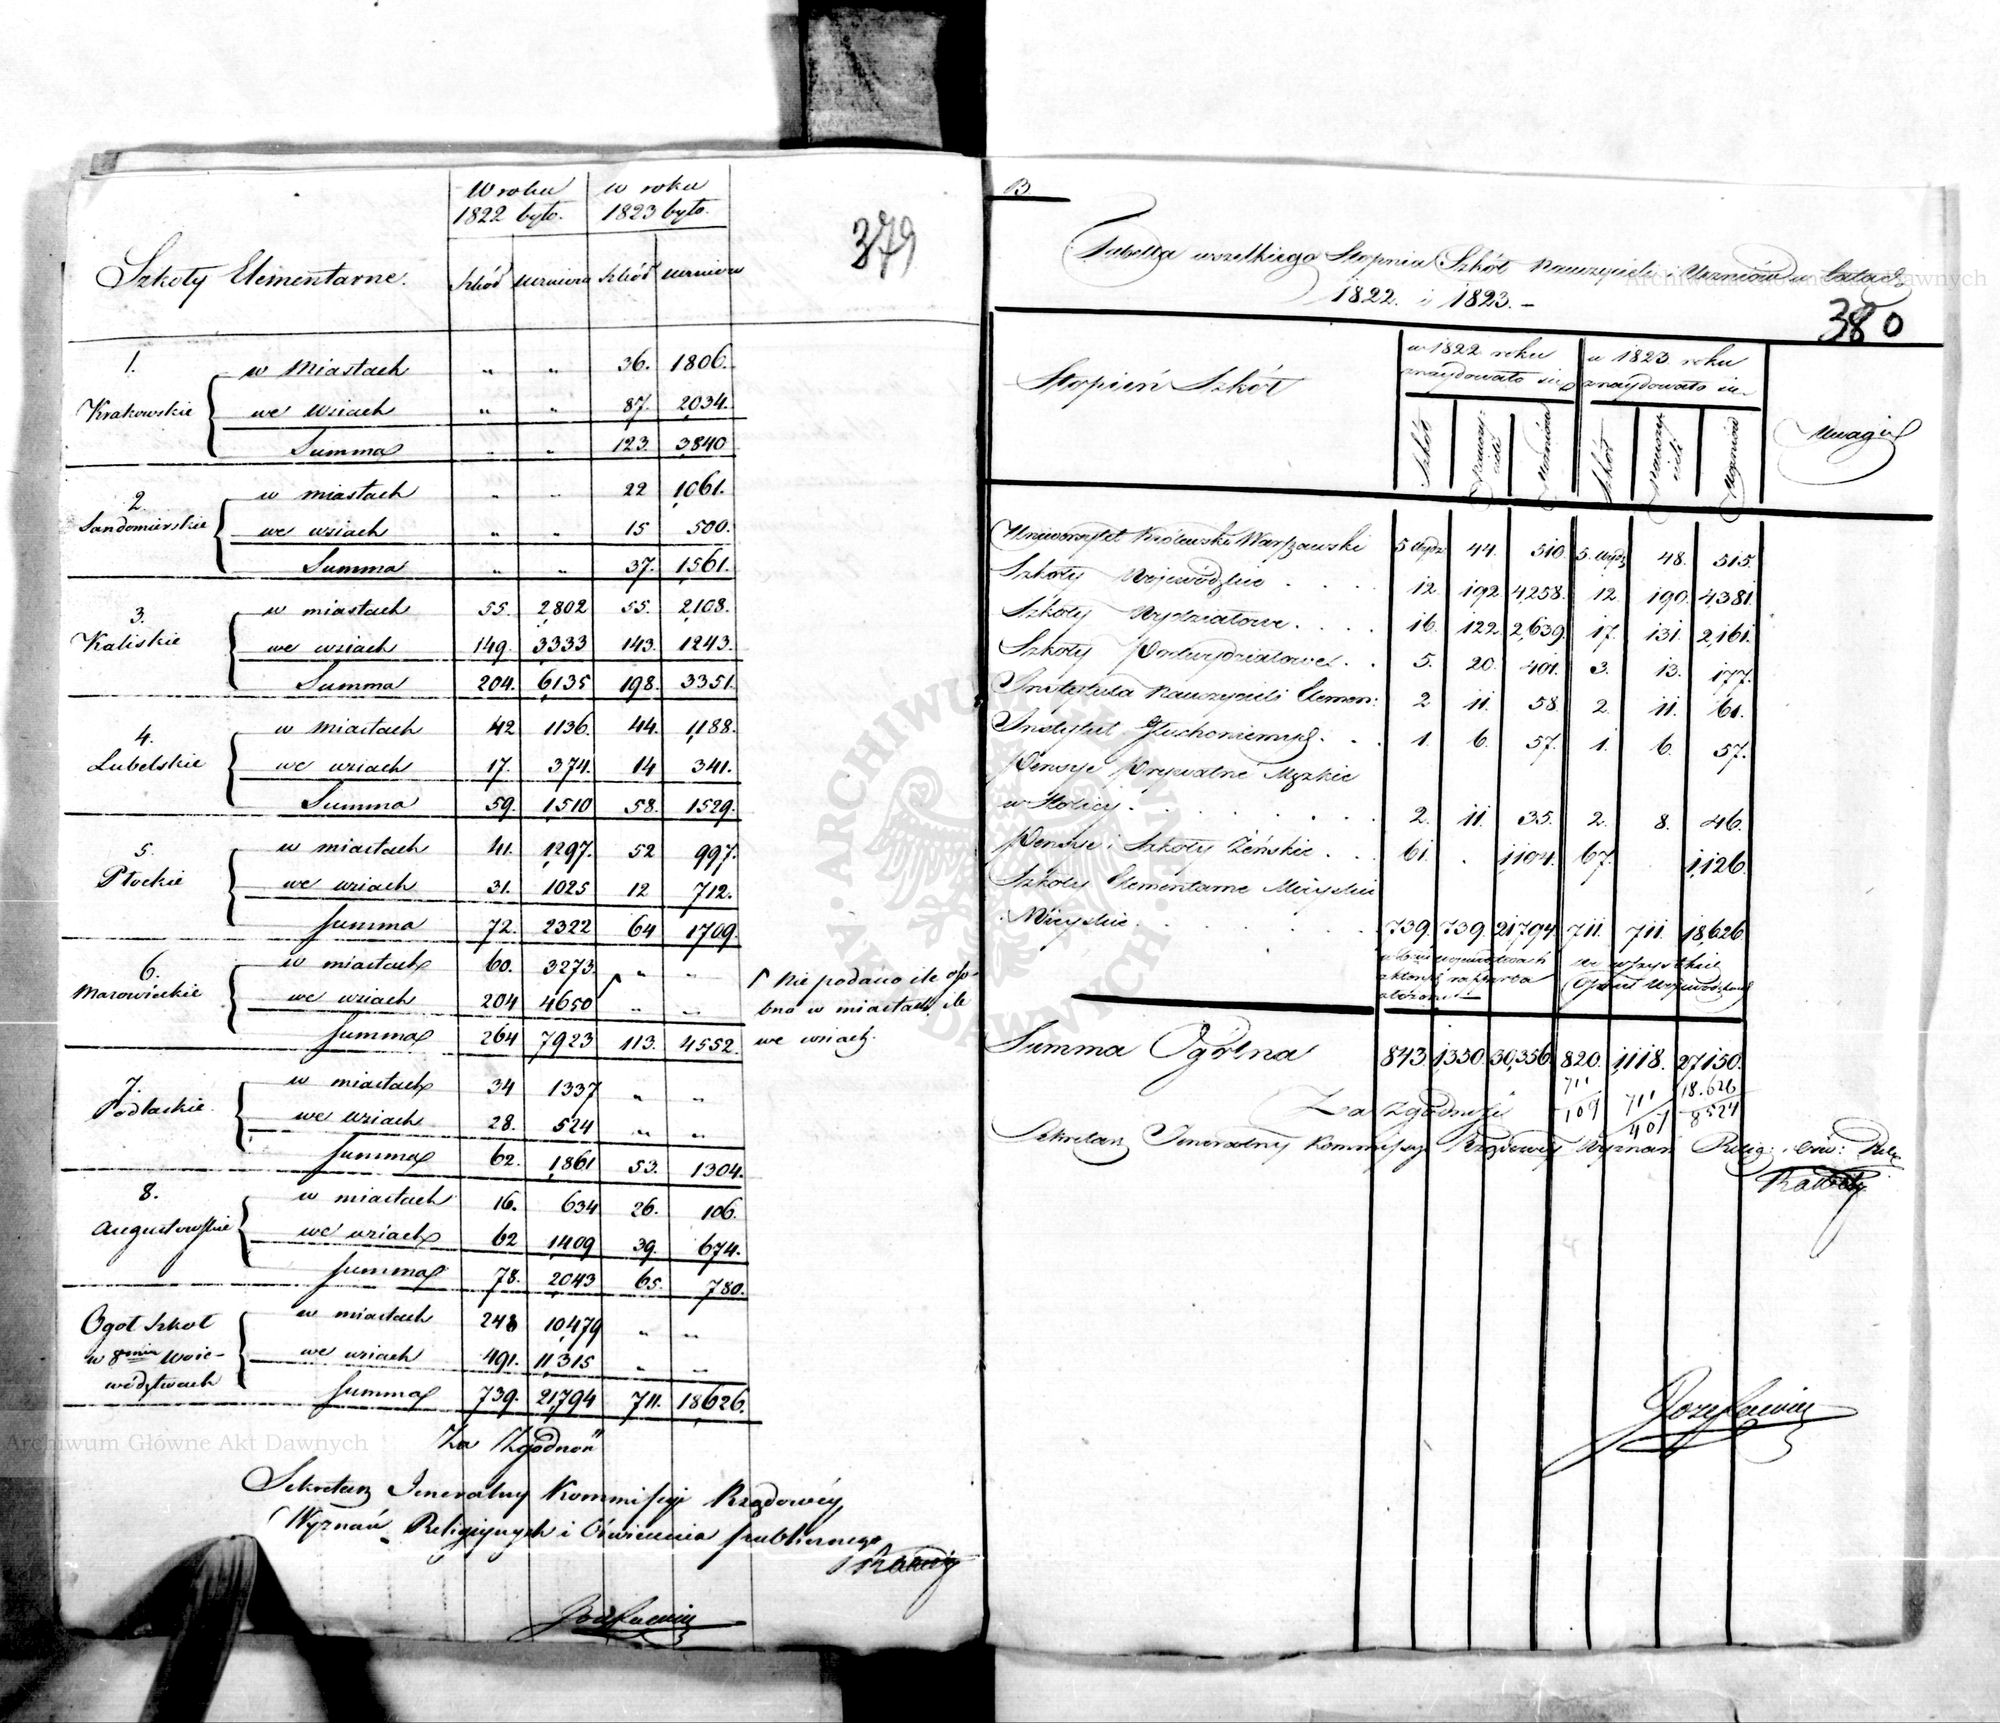 W roku w roku
1822 było. 1823 było.
379
Szkoły Elementarne. Szkół uczniów Szkół uczniów
1. w Miastach „ „ 36. 1806.
Krakowskie we wsiach „ „ 87. 2034.
Summa „ „ 123. 3840
2. w miastach „ „ 22 1061.
Sandomierskie we wsiach „ „ 15 500.
Summa „ „ 37. 1561.
3. w miastach 55. 2,802 55. 2,108.
Kaliskie we wsiach 149. 3333 143. 1243.
Summa 204. 6,135 198. 3351.
4. w miastach 42 1136. 44. 1,188.
Lubelskie we wsiach 17. 374. 14 341.
Summa 59. 1,510 58. 1529.
5. w miastach 41. 1297. 52 997.
Płockie we wsiach 31. 1025 12 712.
Summa 72. 2322 64 1709.
6. w miastach 60. 3273 „ „
Mazowieckie we wsiach 204 4650 „ „
Summa 264 7923 113. 4552.
Nie podano ile oso-
bno w miastach, ile
we wsiach.
7. w miastach 34 1337 „ „
Podlaskie we wsiach 28. 524 „ „
Summa 62. 1,861 53. 1304.
8. w miastach 16. 634 26. 106.
Augustowskie we wsiach 62 1,409 39. 674.
Summa 78. 2043 65. 780.
Ogół szkół w miastach 248 10,479 „ „
w 8miu Woie- we wsiach 491. 11,315 „ „
wództwach Summa 739. 21,794 711. 18,626.
Za Zgodność
Sekretarz Jeneralny Kommissyi Rządowéy
Wyznań Religiynych i Oświecenia publicznego
Archiwum Główne Akt Dawnych
B
Tabella wszelkiego Stopnia Szkół Nauczycieli i Uczniów w latach
1822. i 1823. –
380
Stopień Szkół
w 1822 roku w 1823 roku
znaydowało się znaydowało się
Szkół Nauczycieli Uczniów Szkół Nauczycieli Uczniów Uwagi
Uniwersytet Królewski Warszawski 5 wydz. 44. 510. 5. wydz. 48. 515.
Szkoły Wojewódzkie . . . . 12. 192. 4,258. 12. 190. 4,381.
Szkoły Wydziałowe . . . . 16. 122. 2,639. 17. 131. 2,161.
Szkoły Podwydziałowe . . 5. 20. 401. 3. 13. 177.
Instytuta Nauczycieli Elemen: 2 11. 58. 2. 11. 61.
Instytut Głuchoniemych . . . 1. 6. 57. 1. 6. 57.
Pensye Prywatne Męzkie
w Stolicy . . . . . . . . 2. 11. 35. 2. 8. 46.
Pensye i Szkoły Żeńskie . . . 61. . 1,104. 67. . 1,126.
Szkoły Elementarne
739. 739. 21,794 711. 711. 18,626
we wszystkich
Summa Ogólna 843. 1330. 30,356. 820. 1,118. 27,150.
711 711 18.626
109 407 8524
Za Zgodność
Sekretarz Jeneralny Kommissyi Rządowéy Wyznań Relig: i Ośw: Publ:
ARCHIWUM GŁÓWNE AKT DAWNYCH
Archiwum Główne Akt Dawnych